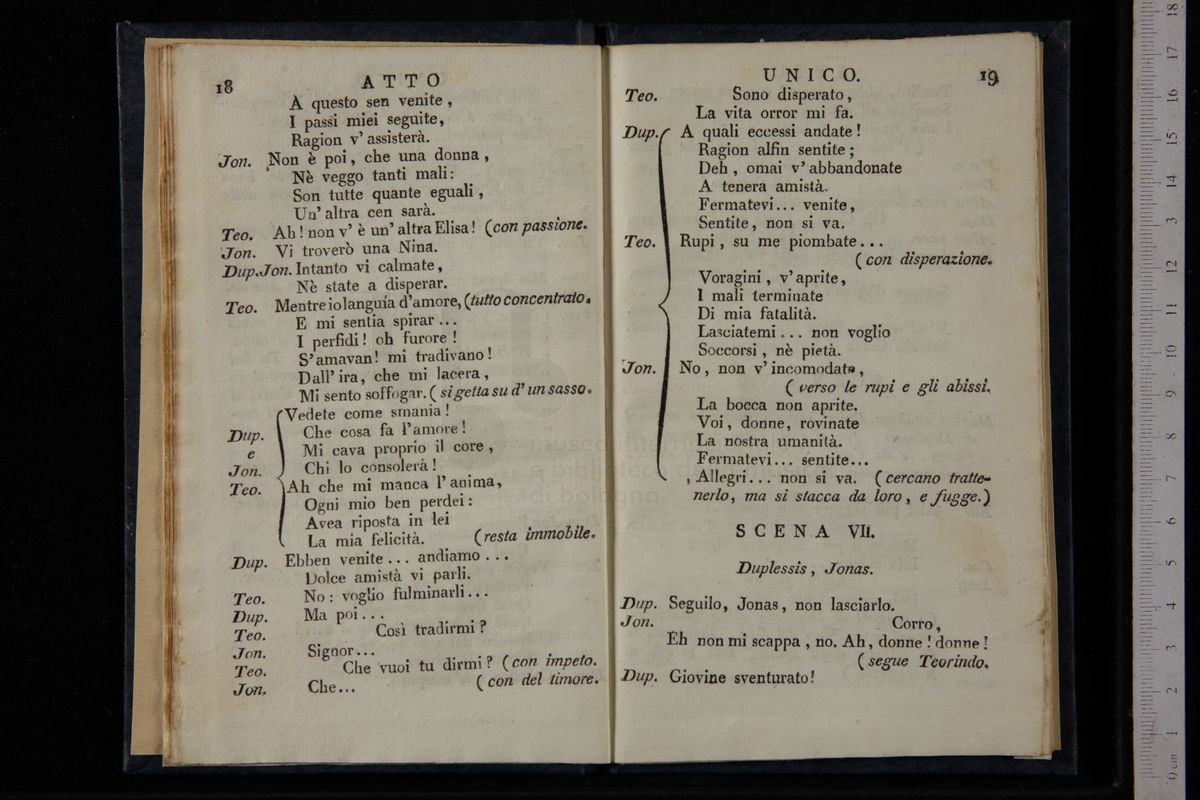 18 ATTO
A questo sen venite,
I passi miei seguite,
Ragion v' assisterà.
Jon. Non è poi, che una donna,
Nè veggo tanti mali:
Son tutte quante eguali,
Un' altra cen sarà.
Teo. Ah! non v' è un' altra Elisa! (con passione.
Jon. Vi troverò una Nina.
Dup. Jon. Intanto vi calmate,
Nè state a disperar.
Teo. Mentre io languía d'amore, (tutto concentrato.
E mi sentia spirar...
I perfidi! oh furore!
S'amavan! mi tradivano!
Dall' ira, che mi lacera,
Mi sento soffogar. (si getta su d' un sasso.
Vedete come smania!
Dup. Che cosa fa l'amore!
e Mi cava proprio il core,
Jon. Chi lo consolerà!
Teo. Ah che mi manca l'anima,
Ogni mio ben perdei:
Avea riposta in lei
La mia felicità. (resta immobile.
Dup. Ebben venite... andiamo...
Dolce amistà vi parli.
Teo. No: voglio fulminarli...
Dup. Ma poi...
Teo. Così tradirmi?
Jon. Signor...
Teo. Che vuoi tu dirmi? (con impeto.
Jon. Che... (con del timore.
UNICO. 19
Teo. Sono disperato,
La vita orror mi fa.
Dup. A quali eccessi andate!
Ragion alfin sentite;
Deh, omai v' abbandonate
A tenera amistà.
Fermatevi... venite,
Sentite, non si va.
Teo. Rupi, su me piombate...
(con disperazione.
Voragini, v' aprite,
I mali terminate
Di mia fatalità.
Lasciatemi... non voglio
Soccorsi, nè pietà.
Jon. No, non v' incomodate,
(verso le rupi e gli abissi.
La bocca non aprite.
Voi, donne, rovinate
La nostra umanità.
Fermatevi... sentite...
Allegri... non si va. (cercano tratte-
nerlo, ma si stacca da loro, e fugge.)
SCENA VII.
Duplessis, Jonas.
Dup. Seguilo, Jonas, non lasciarlo.
Jon. Corro,
Eh non mi scappa, no. Ah, donne! donne!
(segue Teorindo.
Dup. Giovine sventurato!
museo inter
e bibliotec
di bologna
0 cm 1 2 3 4 5 6 7 8 9 10 11 12 13 14 15 16 17 18